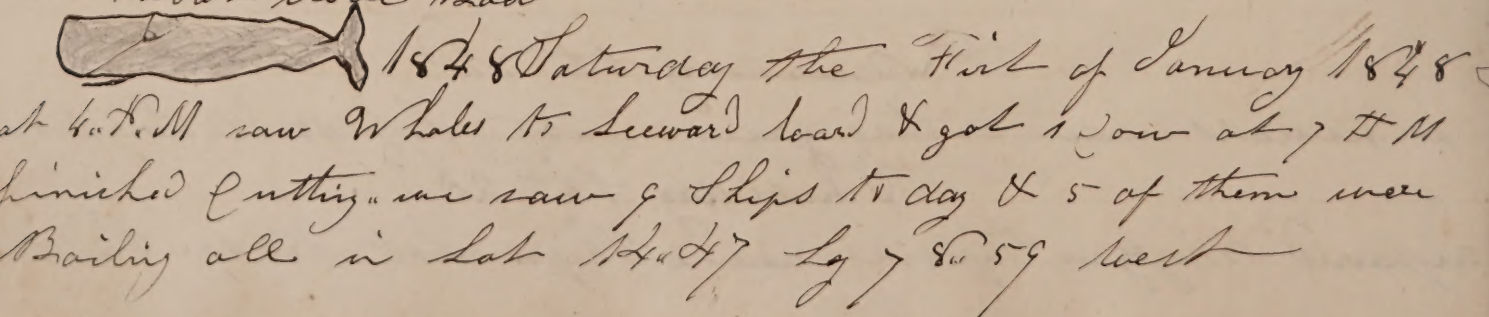 1848 Saturday the First of January 1848
at 4..P.M saw Whales to Leeward loard & got 1 Cow at 7 P M
finished Cutting.. we saw 9 Ships to day & 5 of them were
Boiling all in Lat 14..47 Lg 78..59 West